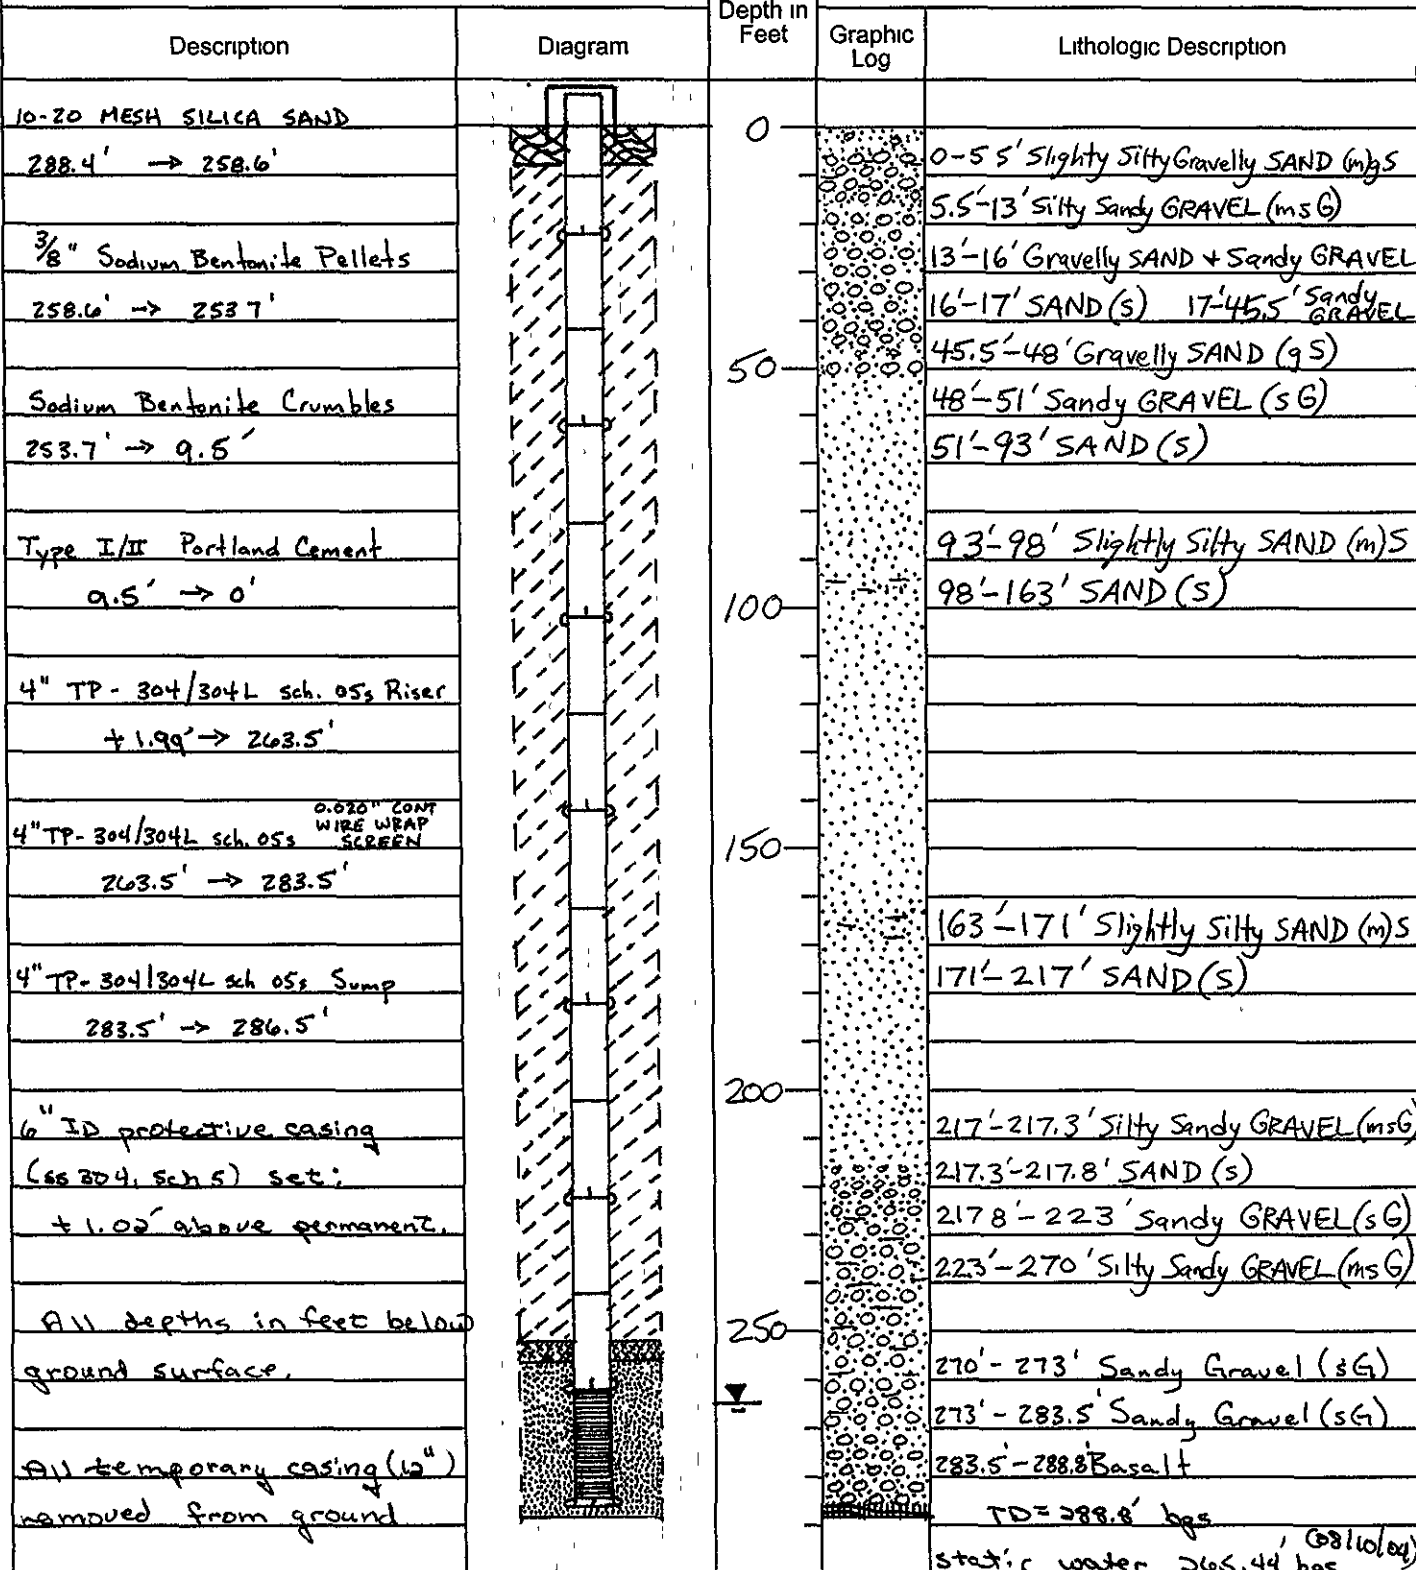 Description
Diagram
Depth in
Feet
Graphic
Log
Lithologic Description
10-20 MESH SILICA SAND
288.4' → 258.6'
3/8" Sodium Bentonite Pellets
258.6' → 253 7'
Sodium Bentonite Crumbles
253.7' → 9.5'
Type I/II Portland Cement
9.5' → 0'
4" TP - 304/304L sch. 05s Riser
+ 1.99' → 263.5'
0.020" CONT
WIRE WRAP
4" TP-304/304L sch. 05s SCREEN
263.5' → 283.5'
4" TP-304/304L sch 05s Sump
283.5' → 286.5'
6" ID protective casing
(ss 304, sch 5) set:
+ 1.02' above permanent.
All depths in feet below
ground surface.
All temporary casing (12")
removed from ground
0
50
100
150
200
250
0-5 5' Slighty Silty Gravelly SAND (m)gS
5.5'-13' Silty Sandy GRAVEL (msG)
13'-16' Gravelly SAND + Sandy GRAVEL
16'-17' SAND (s) 17'-45.5' Sandy GRAVEL
45.5'-48' Gravelly SAND (gS)
48'-51' Sandy GRAVEL (sG)
51'-93' SAND (s)
93'-98' Slightly Silty SAND (m)S
98'-163' SAND (s)
163'-171' Slightly Silty SAND (m)S
171'-217' SAND (s)
217'-217.3' Silty Sandy GRAVEL (msG)
217.3'-217.8' SAND (s)
217 8'-223' Sandy GRAVEL (sG)
223'-270' Silty Sandy GRAVEL (msG)
270'-273' Sandy Gravel (sG)
273'-283.5' Sandy Gravel (sG)
283.5'-288.8' Basalt
TD = 288.8' bgs
(08/10/04)
static water 265.44' bgs